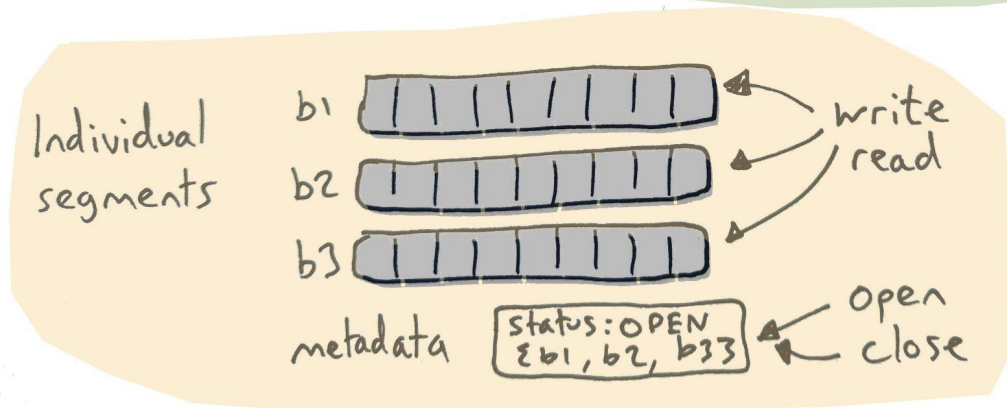 Individual
segments
b1
b2
b3
write
read
metadata
status: OPEN
{b1, b2, b3}
open
close